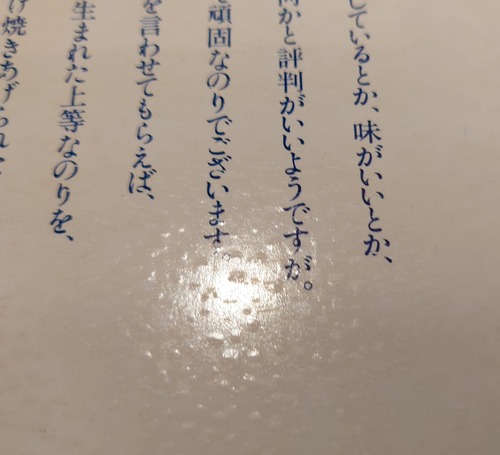 しているとか、味がいいとか、
何かと評判がいいようですが。
頑固なのりでございます。
を言わせてもらえば、
生まれた上等なのりを、
け焼きあげられた